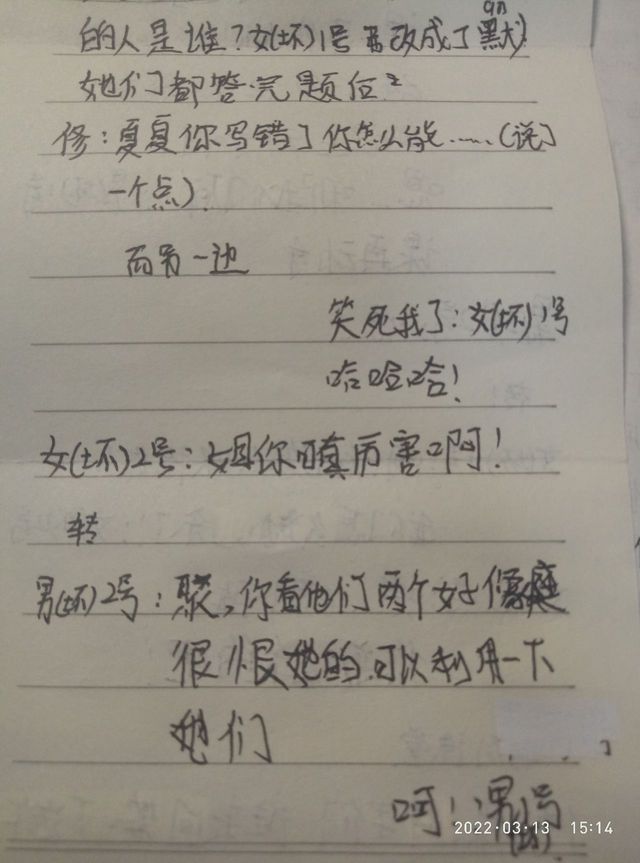 的人是谁?女(坏)1号 改成了默
她们都答完题后
修:夏夏你写错了你怎么能……(说了
一个点)
而另一边
笑死我了:女(坏)1号
哈哈哈!
女(坏)2号:你真厉害啊!
转
男(坏)2号:聚,你看他们两个好像
很恨她的,可以利用一下
她们
呵!
2022·03·13 15:14